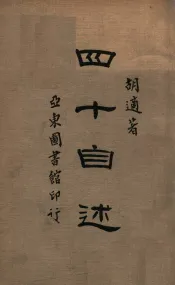 胡適著
四十自述
亞東圖書館印行